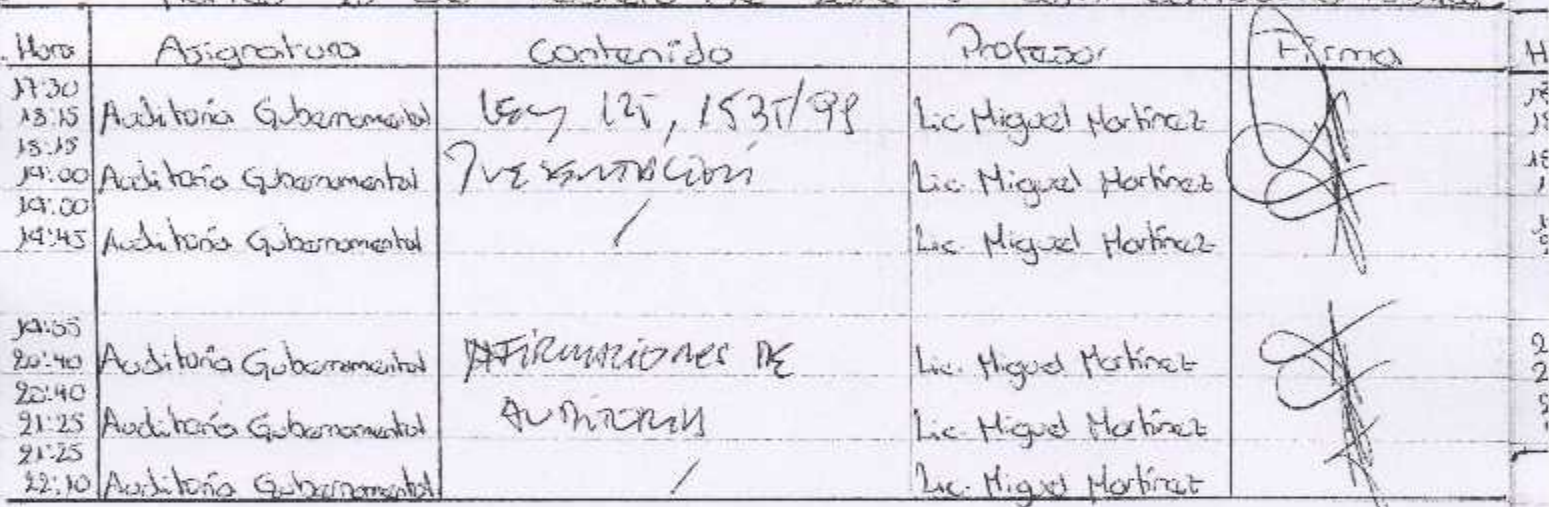 Hora Asignatura Contenido Profesor Firma
17:30
18:15 Auditoría Gubernamental Ley 125, 1535/99 Lic Miguel Martínez
18:15
19:00 Auditoría Gubernamental Lic. Miguel Martínez
19:00
19:45 Auditoría Gubernamental / Lic. Miguel Martínez
19:55
20:40 Auditoría Gubernamental AFIRMACIONES DE Lic. Miguel Martínez
20:40
21:25 Auditoría Gubernamental Lic. Miguel Martínez
21:25
22:10 Auditoría Gubernamental / Lic. Miguel Martínez